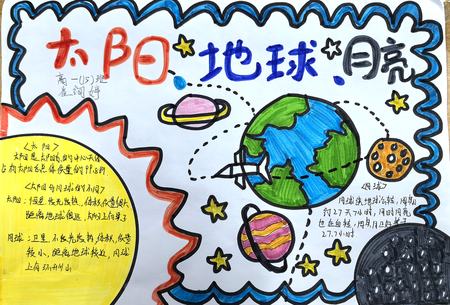 太阳、地球、月亮
高一(15)班
<太阳>
太阳是太阳系的中心天体
占有太阳系总体质量的99.86%
<太阳与月球的不同>
太阳:恒星 发光发热,体积质量很大
距离地球很远
月球:卫星 不发光发热,体积、质量
较小,距离地球较近,月球
上有环形山
<月球>
月球绕地球公转,周期
约27天7小时,
也在自转,周期
27.7小时